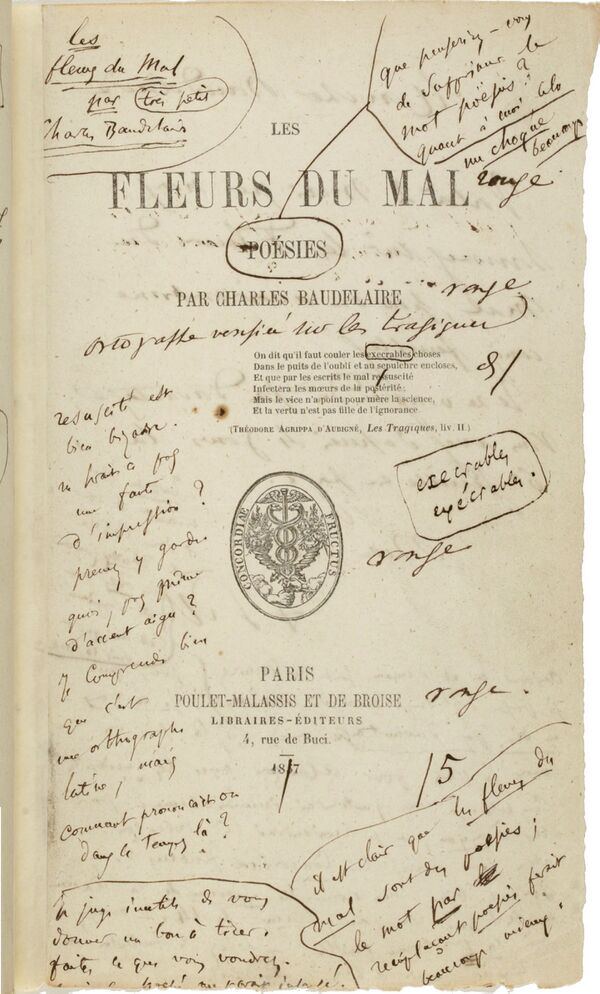 les
fleurs du Mal
par très petit
Charles Baudelaire
que penseriez-vous
de supprimer le
mot poésies?
quant à moi, cela
me choque
beaucoup
LES
FLEURS DU MAL
rouge.
POÉSIES
PAR CHARLES BAUDELAIRE
rouge
ortographe vérifiée sur les Tragiques
On dit qu'il faut couler les execrables choses
Dans le puits de l'oubli et au sepulchre encloses,
Et que par les escrits le mal resuscité
Infectera les mœurs de la postérité;
Mais le vice n'a point pour mère la science,
Et la vertu n'est pas fille de l'ignorance
(THÉODORE AGRIPPA D'AUBIGNÉ, Les Tragiques, liv. II)
resuscité est
bien bizarre.
ne serait-ce pas
une faute
d'impression?
prenez y garde.
quoi, pas même
d'accent aigu?
je comprends bien
que c'est
une orthographe
latine, mais
comment prononçait-on
dans le temps là?
execrables
exécrables.
CONCORDIÆ FRUCTUS
rouge
PARIS
POULET-MALASSIS ET DE BROISE
rouge.
LIBRAIRES-ÉDITEURS
4, rue de Buci.
1857
/5
il est clair que les fleurs du
mal sont des poésies;
le mot par
remplaçant poésies ferait
beaucoup mieux.
Je juge inutile de vous
donner un bon à tirer.
faites ce que vous voudrez.